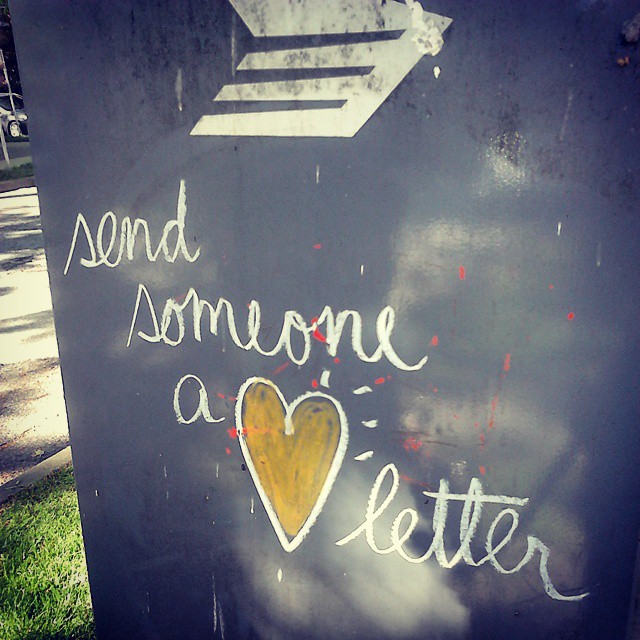 send
someone
a
letter